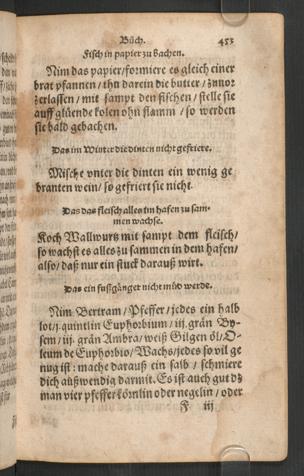 Büch. 453
Fisch in papier zu bachen.
Nim das papier/formiere es gleich einer
brat pfannen/thu darein die butter/ zuuor
zerlassen/ mit sampt den fischen/ stelle sie
auff glüende kolen ohn flamm/ so werden
sie bald gebachen.
Das im Winter die dinten nicht gefriere.
Mische vnter die dinten ein wenig ge
branten wein/ so gefriert sie nicht.
Das das fleisch alles im hafen zu sam-
men wachse.
Koch Wallwurtz mit sampt dem fleisch/
so wachst es alles zu sammen in dem hafen/
also/ daß nur ein stuck darauß wirt.
Das ein fußgänger nicht müd werde.
Nim Bertram/ Pfeffer/ jedes ein halb
lot/ j. quintlin Euphorbium/ iij. gran By-
sem/ iij. gran Ambra/ weiß Gilgen öl/ O-
leum de Euphorbio/ Wachs/ jedes so vil ge
nug ist: mache darauß ein salb/ schmiere
dich außwendig darmit. Es ist auch gut dz
man vier pfeffer kömlin oder negelin/ oder
F iij